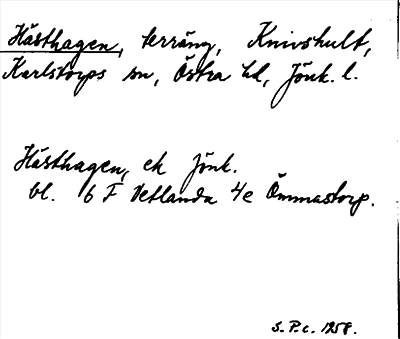 Hästhagen, terräng, Knivshult,
Karlstorps sn, Östra hd, Jönk. l.
Hästhagen, ek Jönk.
bl. 6 F Vetlanda 4e Ömmastorp.
S. P.c. 1958.